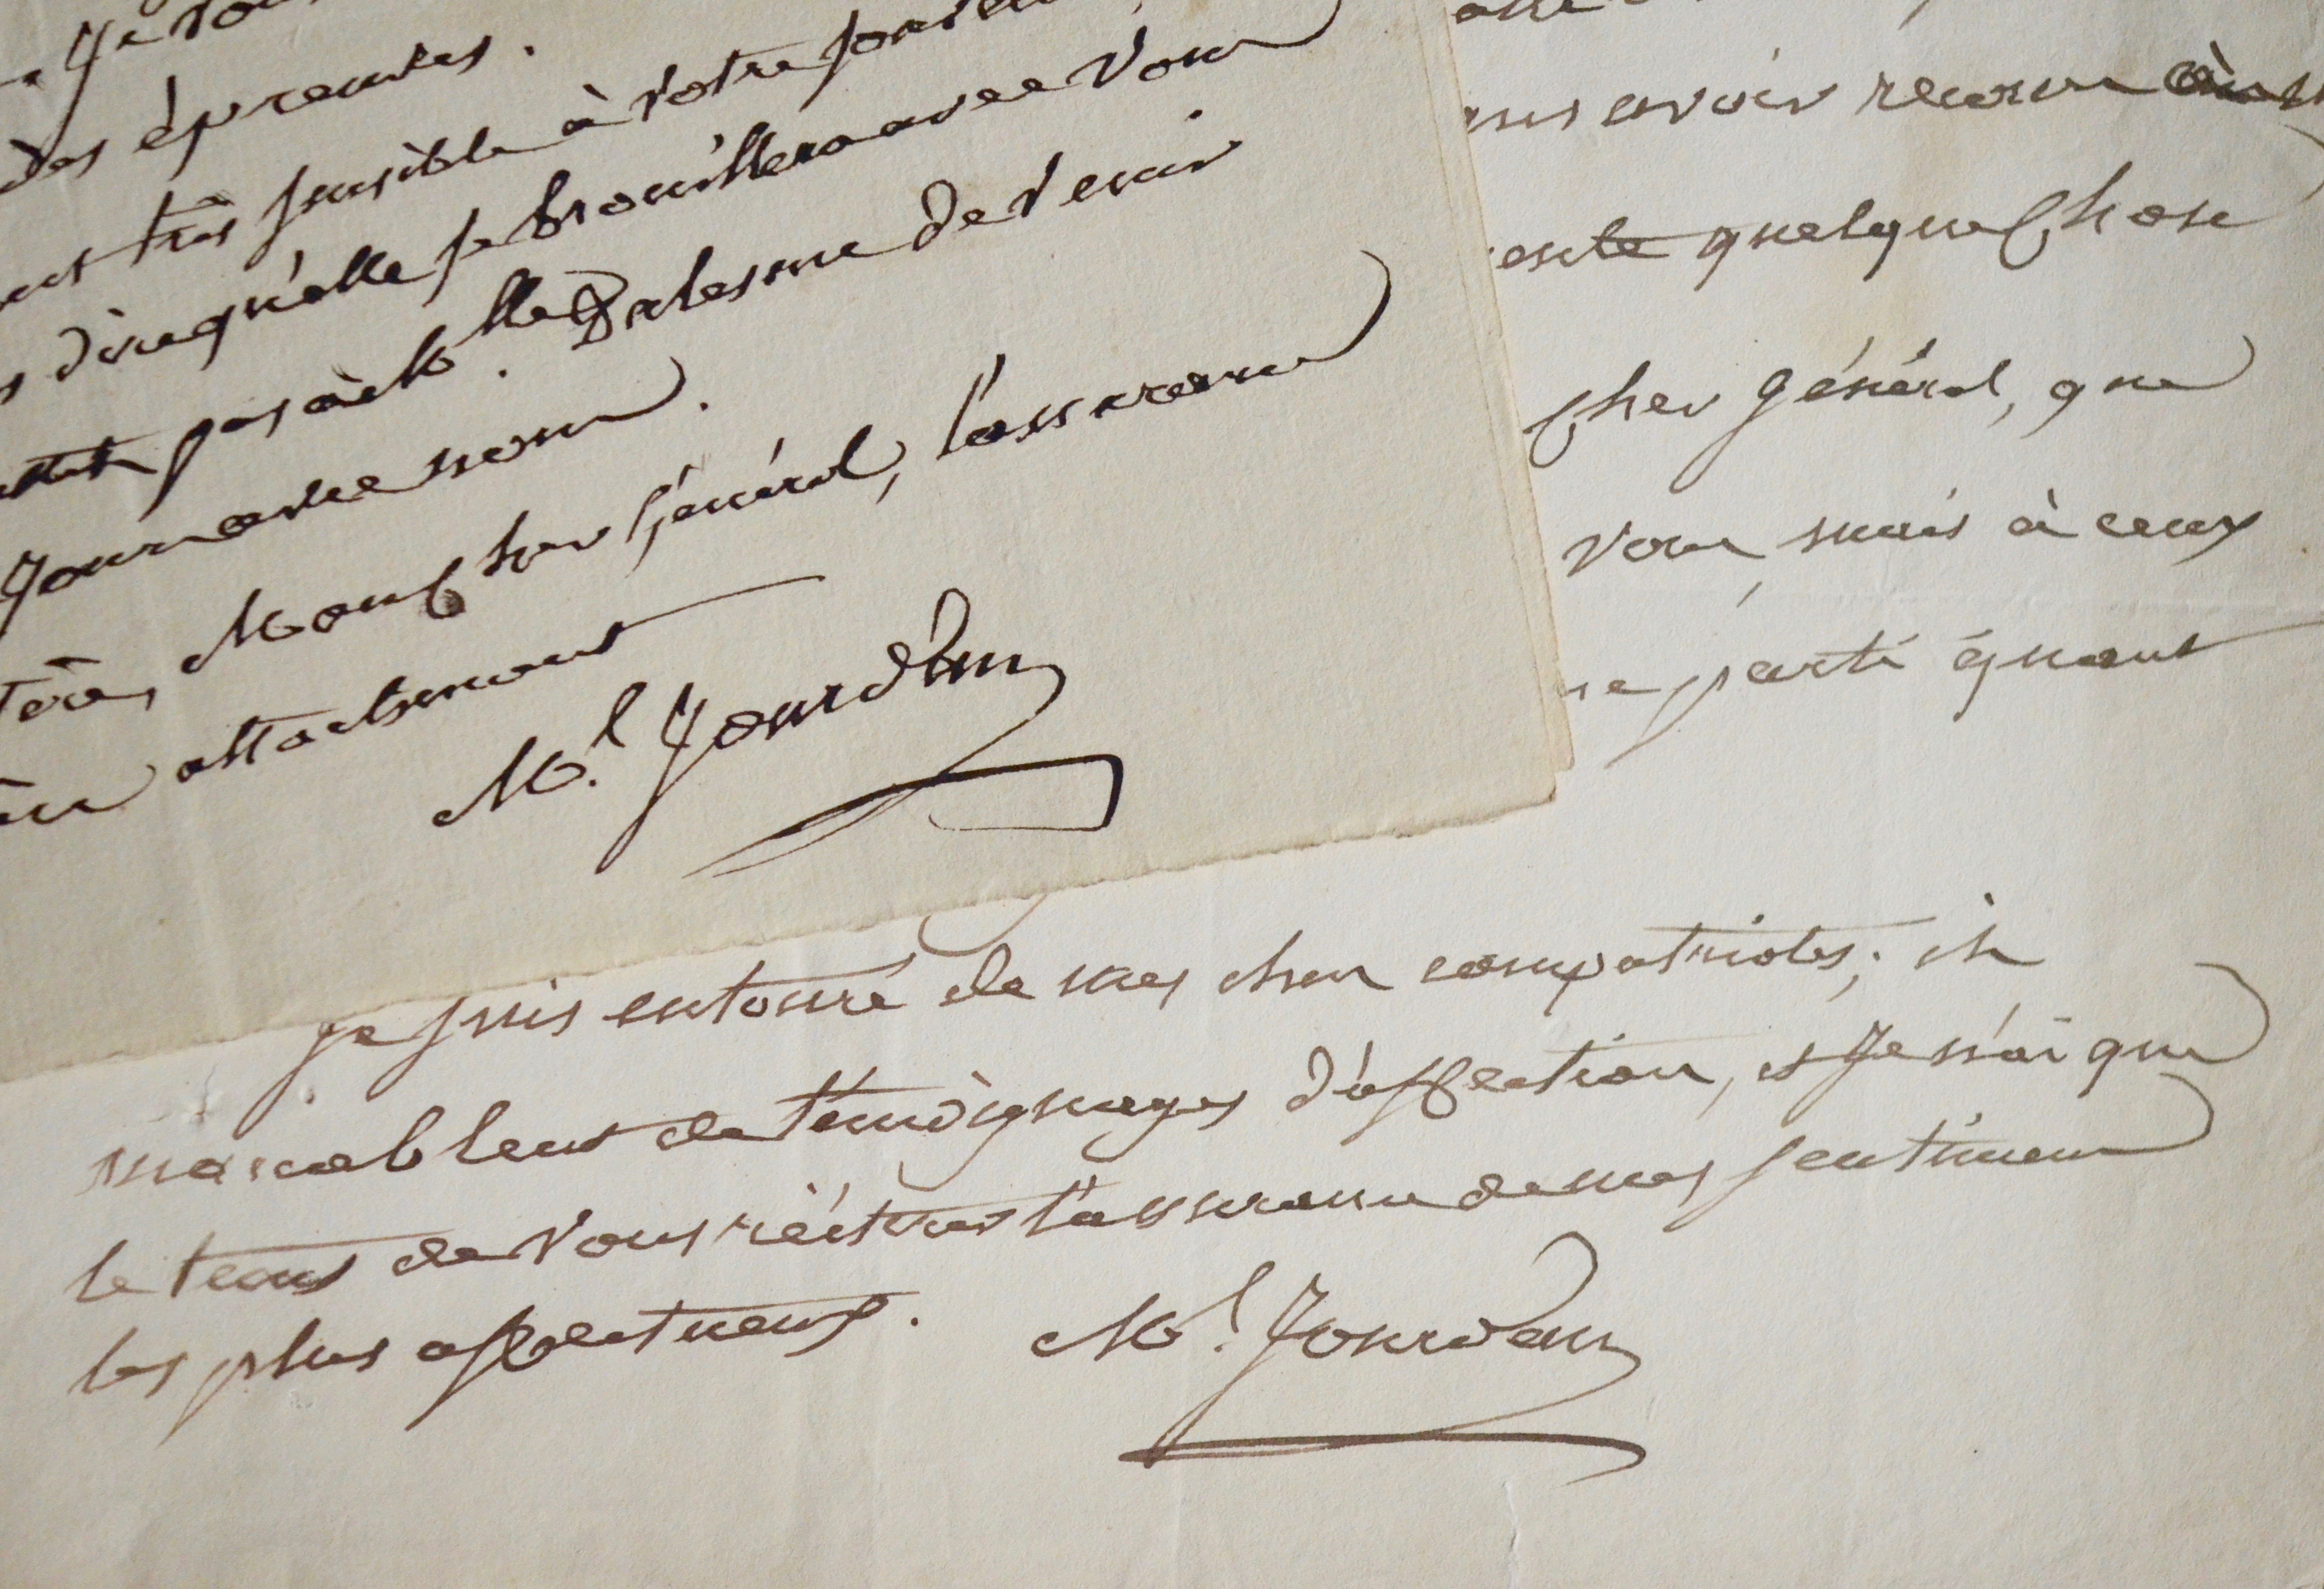 Je
des épreuves.
très sensible à votre
dire qu'elle se brouillera avec vous
pas à Mlle Dalesme de venir
jour avec nous.
Mon Cher Général, l'assurance
attachement
Ml. Jourdan
avoir recours
quelque Chose
Cher général, que
vous, mais à ceux
parti quant
je suis entouré de mes chers compatriotes; ils
m'accablent de témoignages d'affection, et je n'ai que
le tems de vous réitérer l'assurance de mes sentimens
les plus affectueux.
Ml. Jourdan